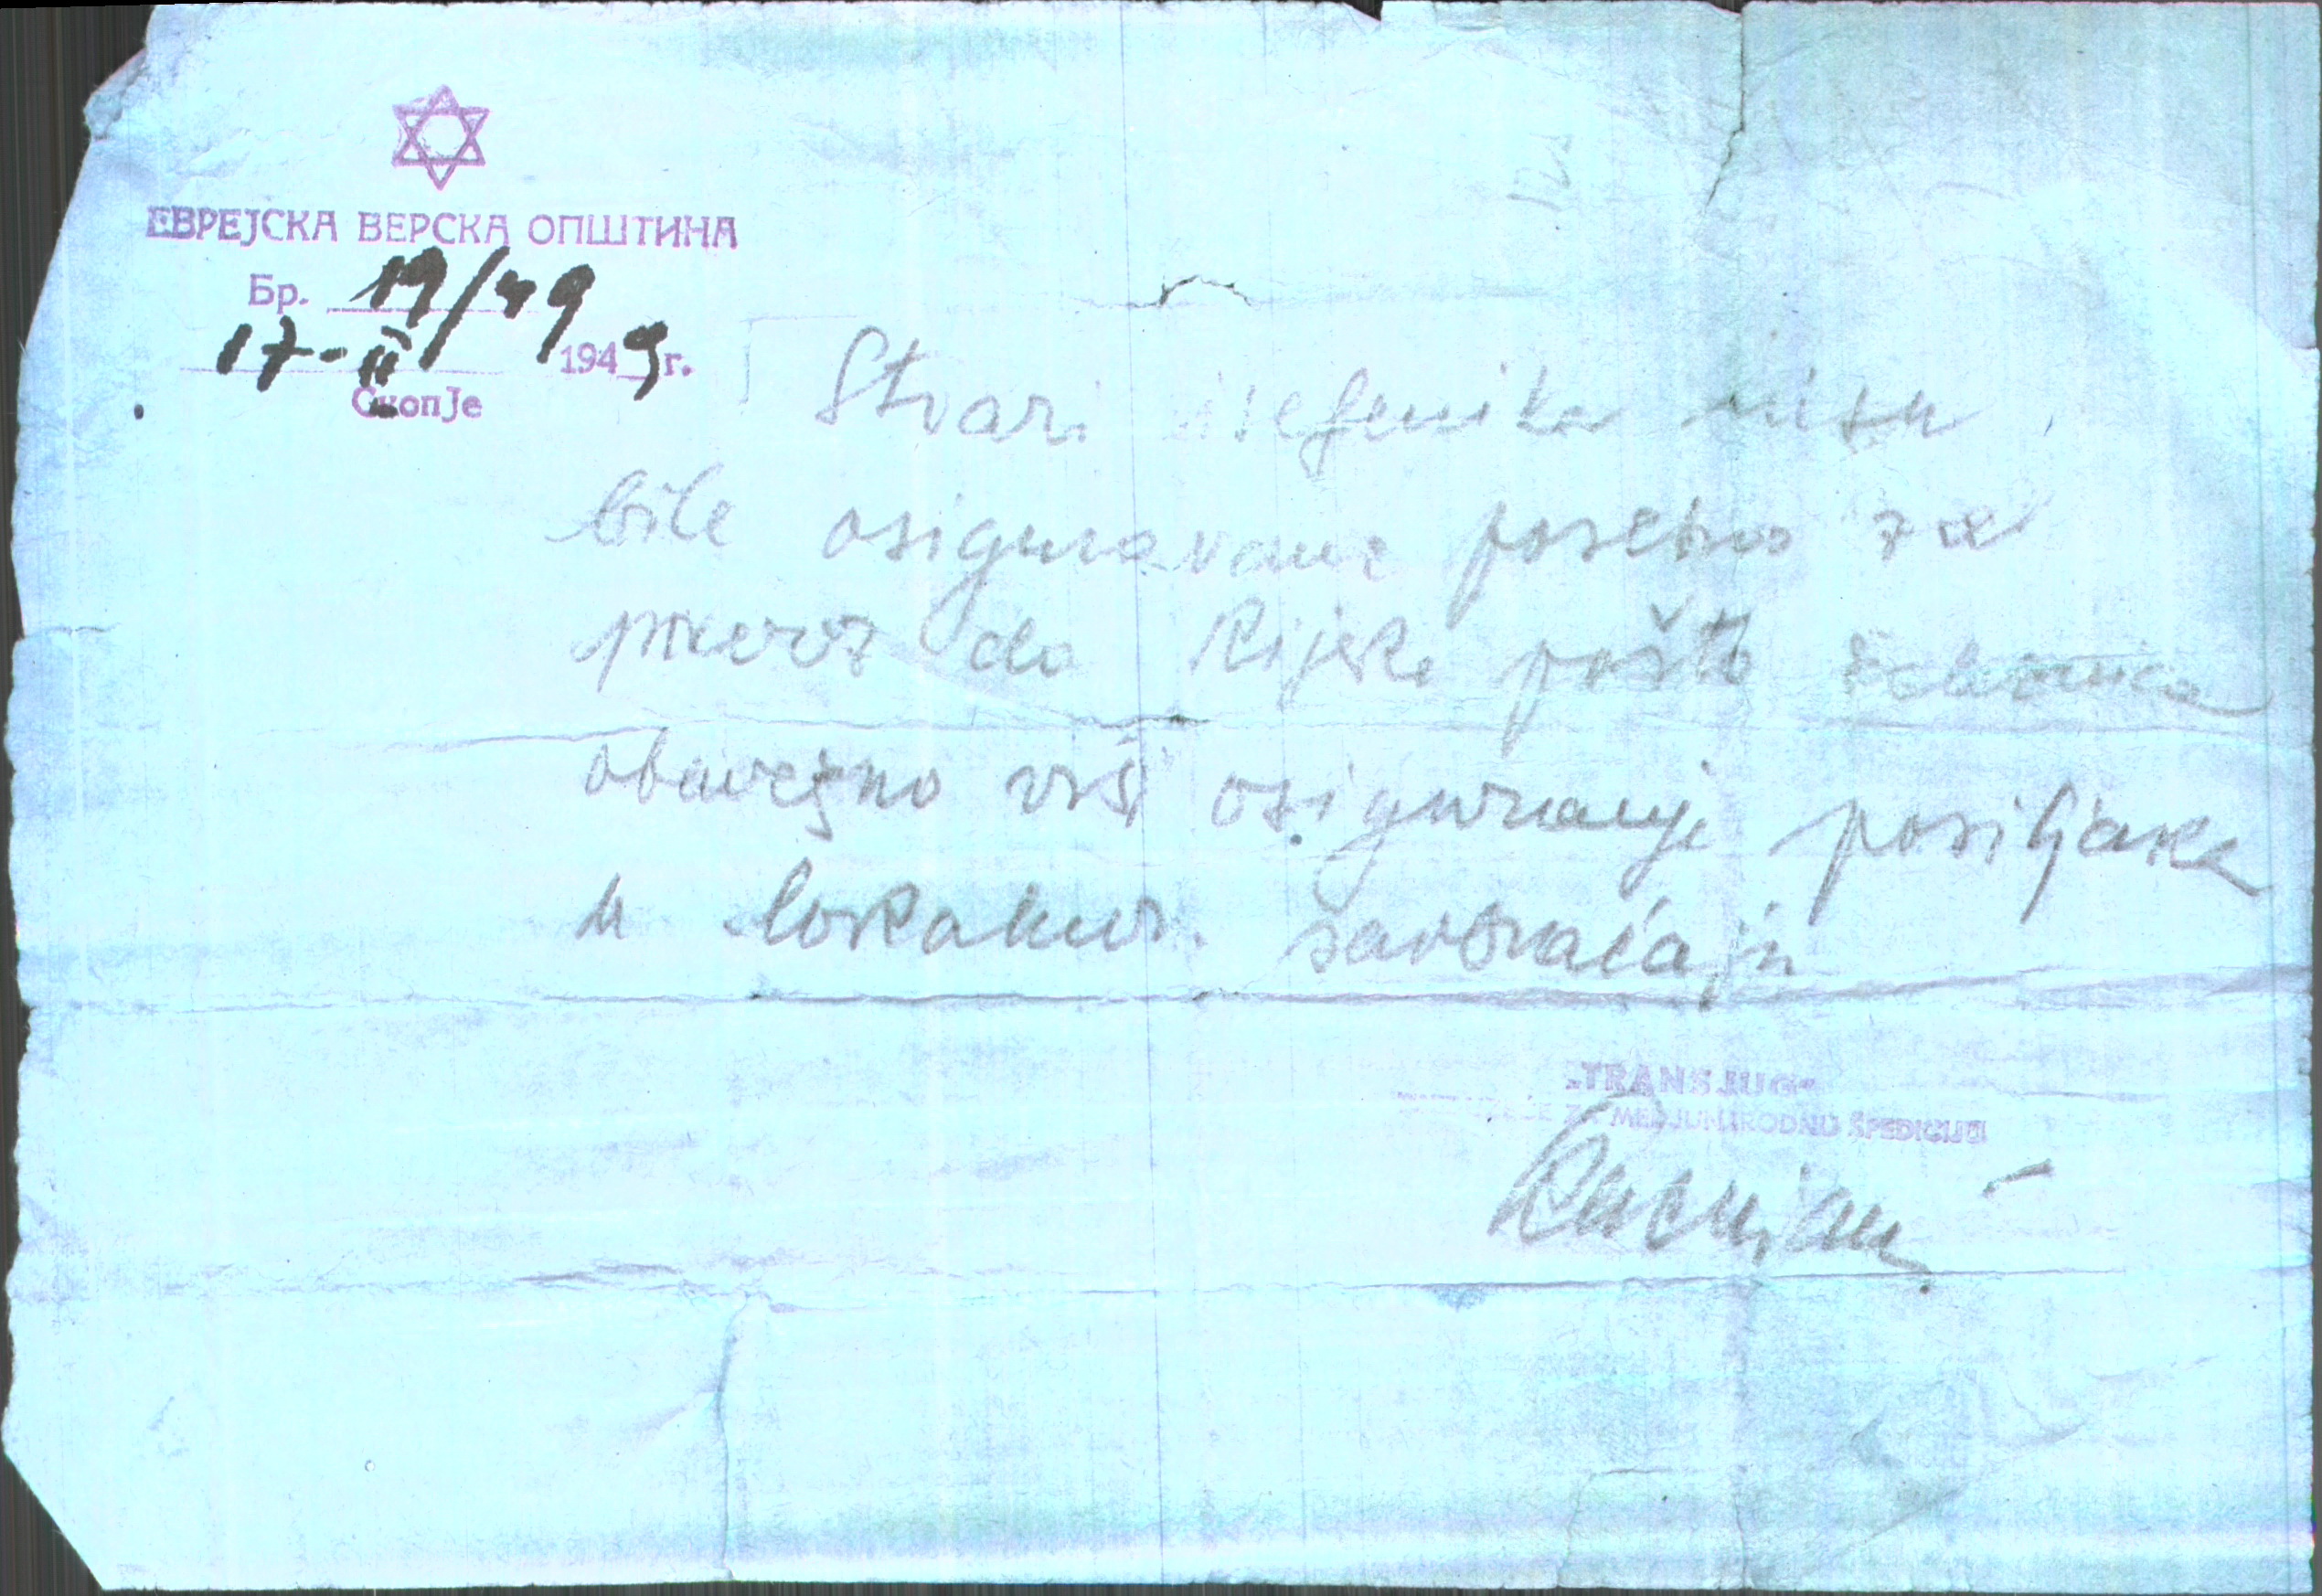 ЕВРЕЈСКА ВЕРСКА ОПШТИНА
Бр. 19/49
17-II 1949 г.
Скопје
Stvari iseljenika nisu
bile osiguravane posebno za
prevoz do Rijeke pošto železnica
obavezno vrši osiguranje pošiljaka
u lokalnom saobraćaju
„TRANSJUG“
PREDUZEĆE ZA MEDJUNARODNU ŠPEDICIJU